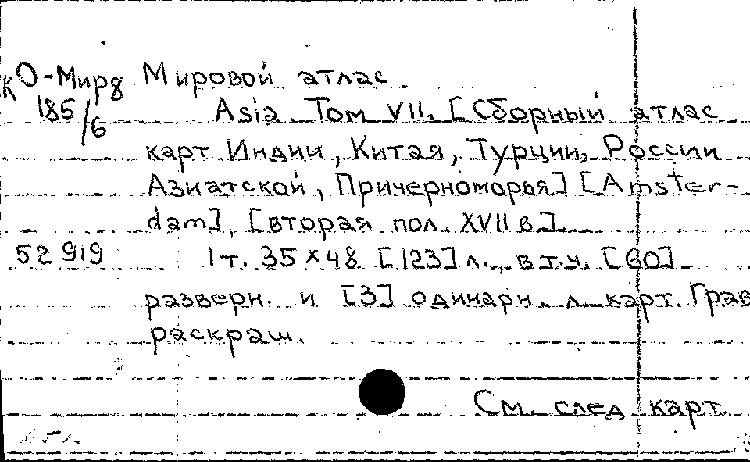 КО-Мир8 Мировой атлас.
185/6 Asia. Том VII. [Сборный атлас
карт Индии, Китая, Турции, России
Азиатской, Причерноморья] [Amster-
dam], [вторая пол. XVII в.].
52919 1 т. 35×48 [123] л., в т.ч. [60]
разверн. и [3] одинарн. л. карт. Грав
раскраш.
См. след карт